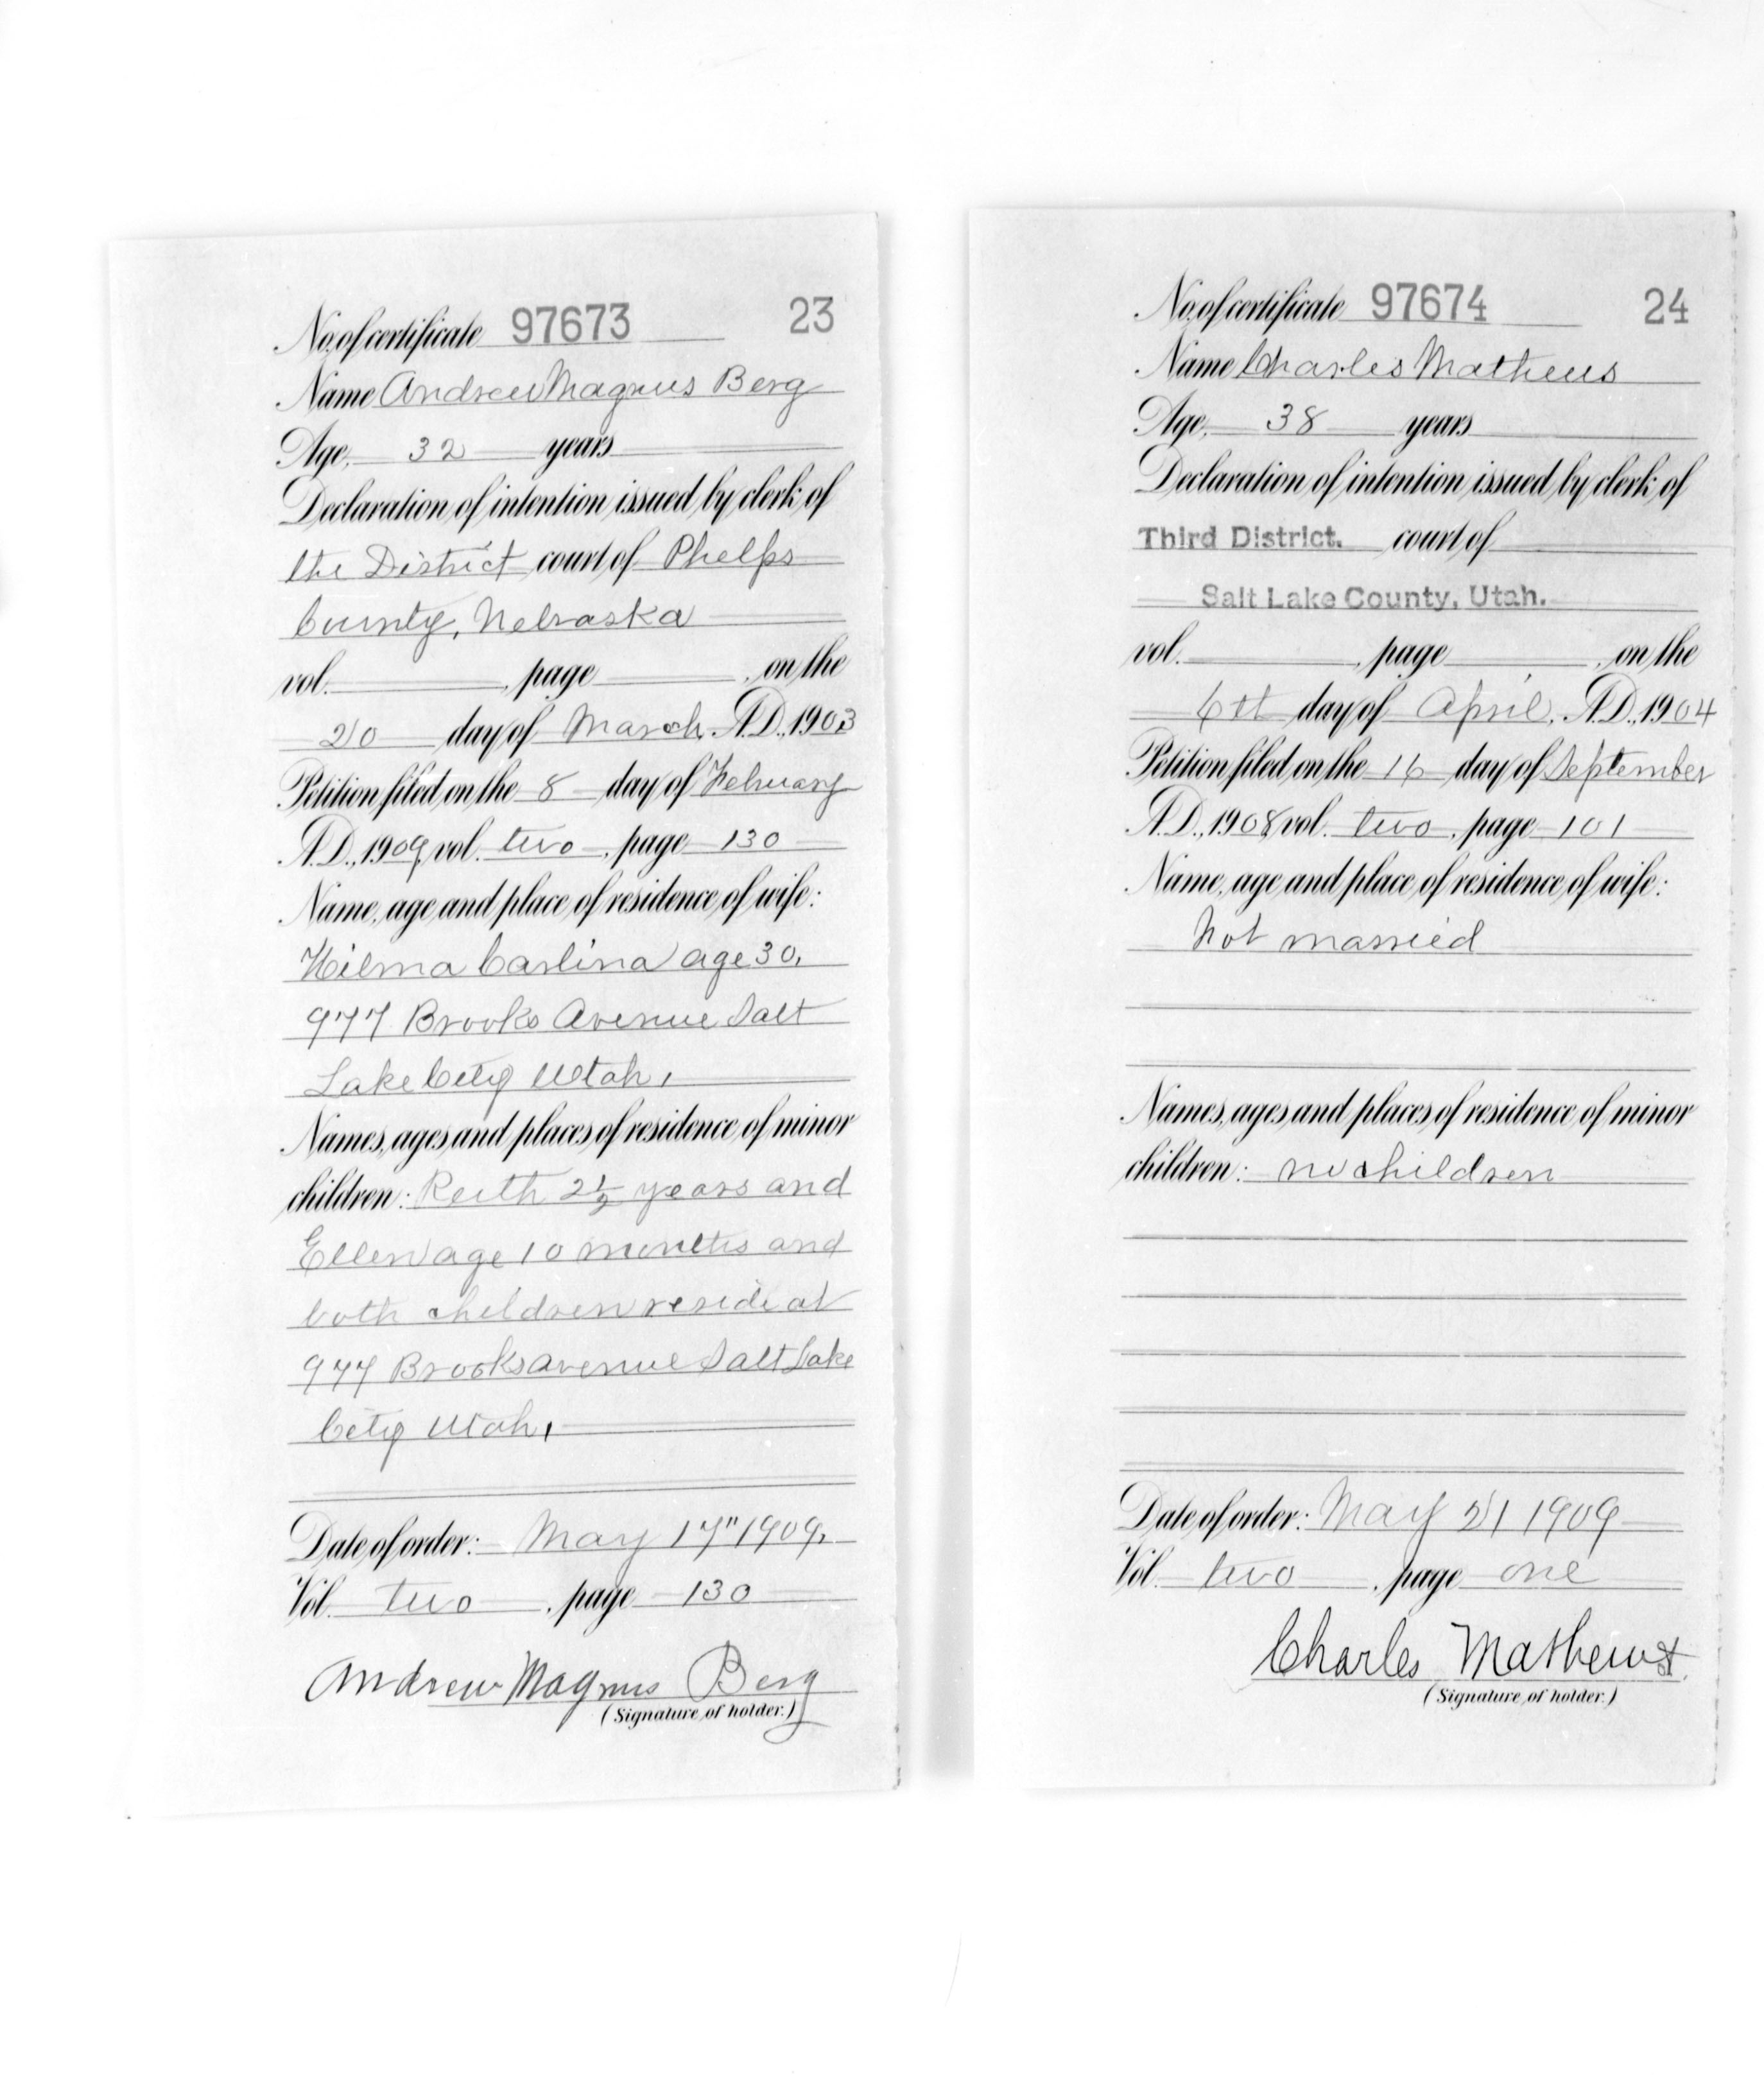 No. of certificate 97673 23
Name Andrew Magnus Berg
Age, 32 years
Declaration of intention issued by clerk of
the District court of Phelps
County, Nebraska
vol. , page , on the
20 day of March, A.D., 1903
Petition filed on the 8 day of February
A.D., 1909, vol. two, page 130
Name, age and place of residence of wife:
Hilma Carlina age 30,
977 Brooks Avenue Salt
Lake City Utah,
Names, ages and places of residence of minor
children: 2½ years and
Ellen age 10 months and
both children reside at
977 Brooks avenue Salt Lake
City Utah,
Date of order: May 17" 1909,
Vol. two, page 130
Andrew Magnus Berg
(Signature of holder.)
No. of certificate 97674 24
Name Charles Mathews
Age, 38 years
Declaration of intention issued by clerk of
Third District. court of
Salt Lake County, Utah.
vol. , page , on the
6th day of April, A.D., 1904
Petition filed on the 16 day of September
A.D., 1908 vol. two, page 101
Name, age and place of residence of wife:
Not married
Names, ages and places of residence of minor
children: no children
Date of order: May 21 1909
Vol. two, page one
Charles
(Signature of holder.)